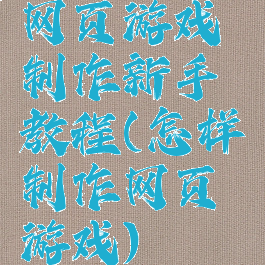 网页游戏
制作新手
教程(怎样
制作网页
游戏)